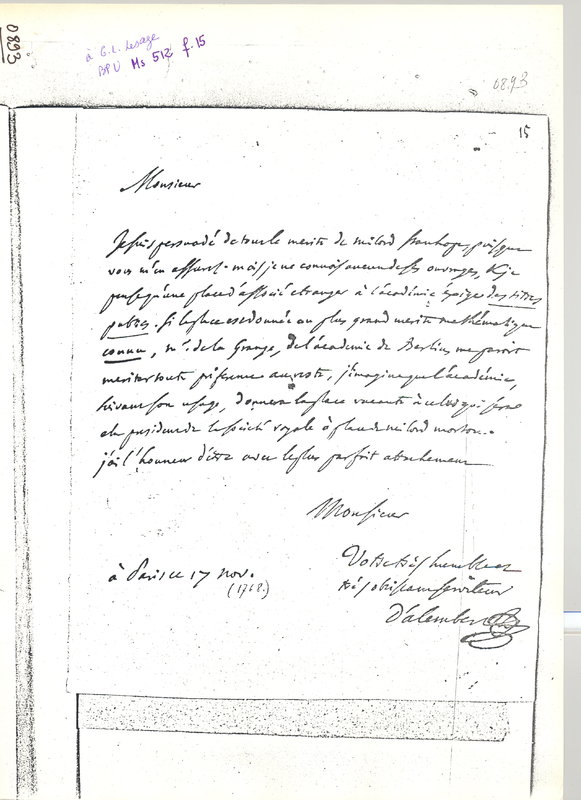 0893
à G. L. Lesage
BPU Ms 512 f. 15
0893
15
Monsieur
Je suis persuadé de tout le merite de milord Stanhope, puisque
vous m'en assurez. mais je ne connois aucun de ses ouvrages, & je
pense qu'une place d'associé etranger à l'académie exige des titres
publics. Si la place est donnée au plus grand merite mathématique
connu, mr. de la Grange, de l'académie de Berlin, me paroit
meriter toute préference au reste, j'imagine que l'académie,
suivant son usage, donnera la place vacante à celui qui sera
elu president de la société royale à place de milord morton.
j'ai l'honneur d'être avec le plus parfait attachement
Monsieur
Votre très humble et
très obeissant serviteur
D'alembert
à Paris ce 17 nov.
(1768.)